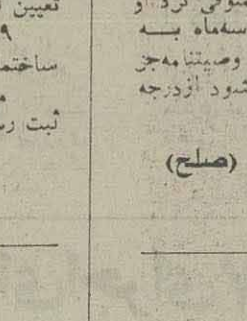 متوفی کرد و
سه‌ماه به
وصیتنامه جز
شود از درجه
(صلح)
تعیین
۹
ساختما
ثبت رس